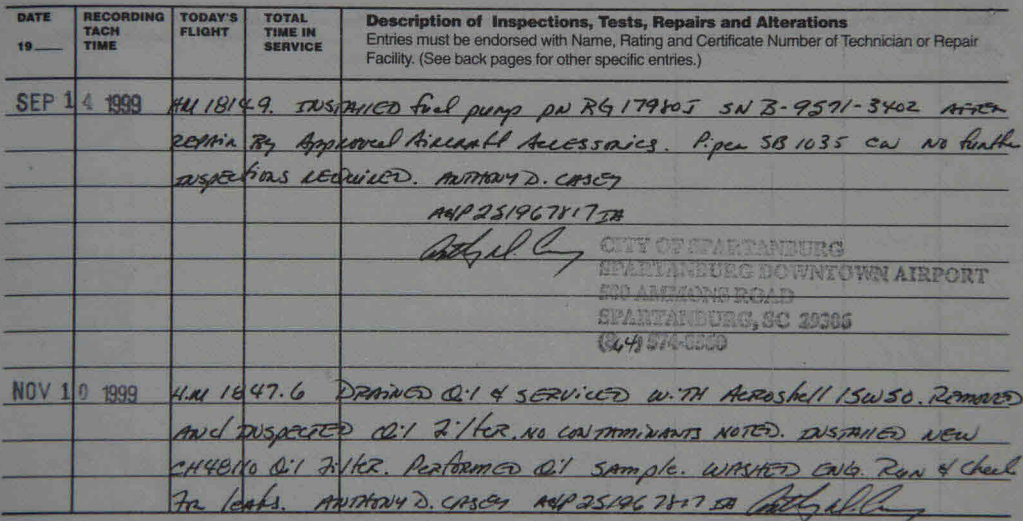 DATE RECORDING TODAY'S TOTAL Description of Inspections, Tests, Repairs and Alterations
TACH FLIGHT TIME IN Entries must be endorsed with Name, Rating and Certificate Number of Technician or Repair
19 TIME SERVICE Facility. (See back pages for other specific entries.)
SEP 14 1999 HM 1814.9. INSTALLED fuel pump PN RG17980J SN B-9571-3402 AFTER
REPAIR By Approved Aircraft Accessories. Piper SB 1035 CW NO further
INSPECTIONS REQUIRED. ANTHONY D. CASEY
A&P 251967817 IA
CITY OF SPARTANBURG
SPARTANBURG DOWNTOWN AIRPORT
500 AMMONS ROAD
SPARTANBURG, SC 29306
(864) 574-8560
NOV 10 1999 H.M 1847.6 DRAINED Oil & SERVICED WITH AEROSHELL 15W50. REMOVED
AND INSPECTED Oil Filter. NO CONTAMINANTS NOTED. INSTALLED NEW
CH48110 Oil Filter. PERFORMED Oil SAMPLE. WASHED ENG. RUN & check
For leaks. ANTHONY D. CASEY A&P 251967817 IA